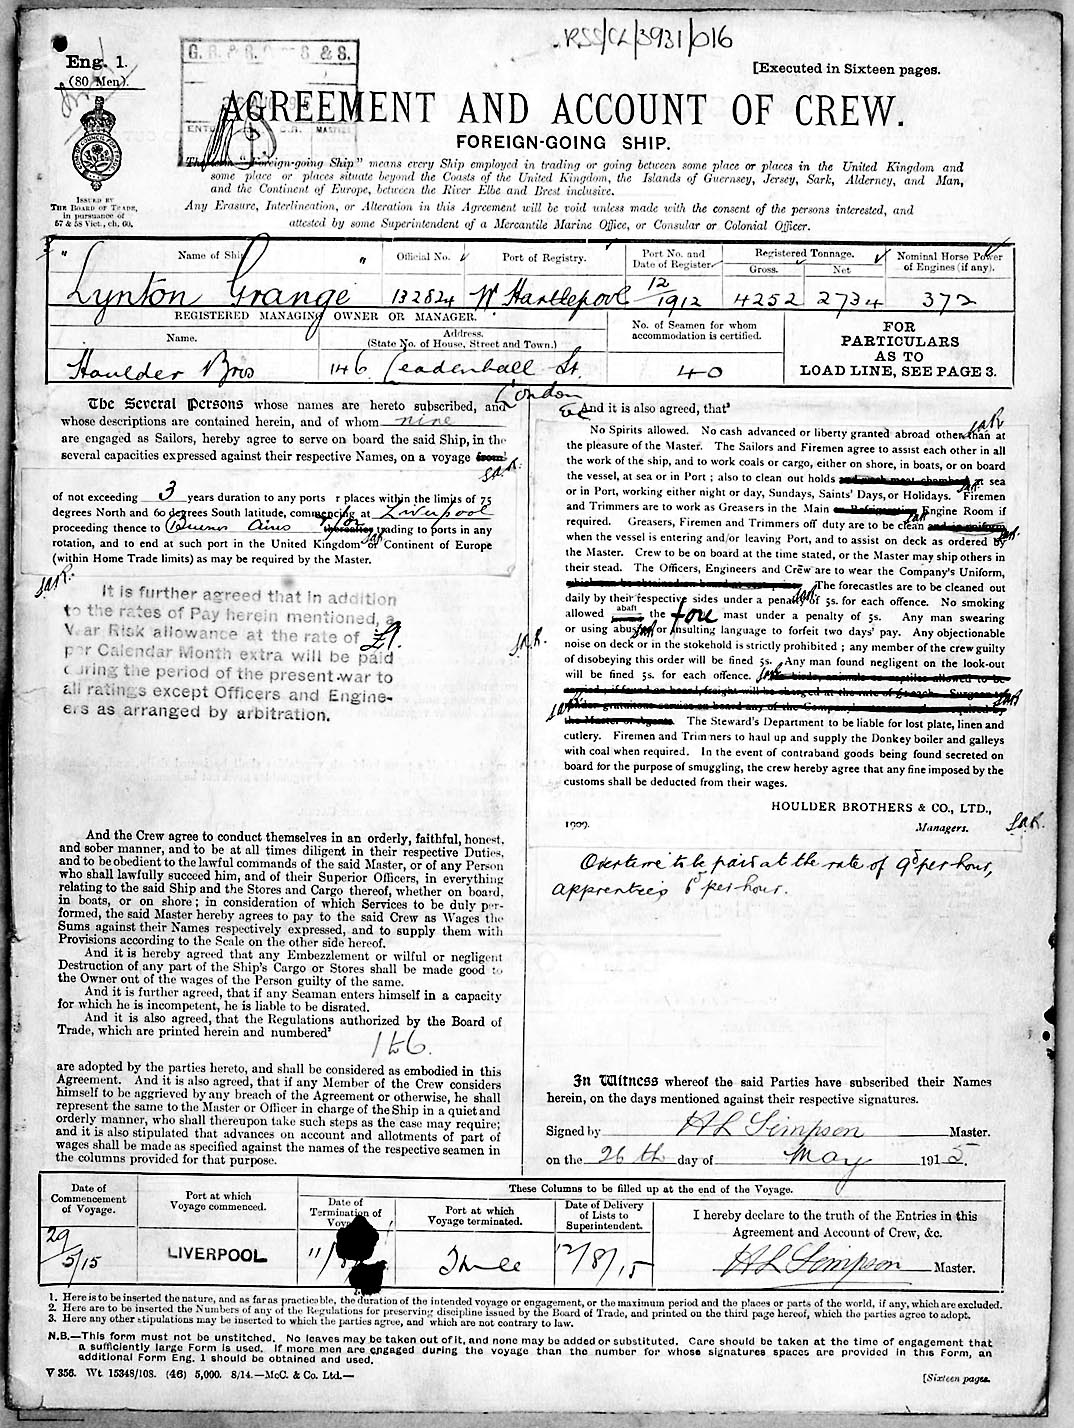 RSS/CL/3931/016
Eng. 1.
(80 Men).
[Executed in Sixteen pages.
AGREEMENT AND ACCOUNT OF CREW.
FOREIGN-GOING SHIP.
"Foreign-going Ship" means every Ship employed in trading or going between some place or places in the United Kingdom and
some place or places situate beyond the Coasts of the United Kingdom, the Islands of Guernsey, Jersey, Sark, Alderney, and Man,
and the Continent of Europe, between the River Elbe and Brest inclusive.
ISSUED BY
THE BOARD OF TRADE,
in pursuance of
57 & 58 Vict., ch. 60.
Any Erasure, Interlineation, or Alteration in this Agreement will be void unless made with the consent of the persons interested, and
attested by some Superintendent of a Mercantile Marine Office, or Consular or Colonial Officer.
Name of Ship
Official No.
Port of Registry.
Port No. and
Date of Register.
Registered Tonnage.
Gross.
Net
Nominal Horse Power
of Engines (if any).
"Lynton Grange"
132824
W Hartlepool
12/1912
4252
2734
372
REGISTERED MANAGING OWNER OR MANAGER.
Name.
Address.
(State No. of House, Street and Town.)
No. of Seamen for whom
accommodation is certified.
FOR
PARTICULARS
AS TO
LOAD LINE, SEE PAGE 3.
Houlder Bros
146 Leadenhall St.
London
E C
40
The Several Persons whose names are hereto subscribed, and
whose descriptions are contained herein, and of whom nine
are engaged as Sailors, hereby agree to serve on board the said Ship, in the
several capacities expressed against their respective Names, on a voyage from
of not exceeding 3 years duration to any ports r places within the limits of 75
degrees North and 60 degrees South latitude, commencing at Liverpool
proceeding thence to Buenos Aires thereafter trading to ports in any
rotation, and to end at such port in the United Kingdom or Continent of Europe
(within Home Trade limits) as may be required by the Master.
It is further agreed that in addition
to the rates of Pay herein mentioned, a
War Risk allowance at the rate of £1.
per Calendar Month extra will be paid
during the period of the present war to
all ratings except Officers and Engine-
ers as arranged by arbitration.
And the Crew agree to conduct themselves in an orderly, faithful, honest,
and sober manner, and to be at all times diligent in their respective Duties,
and to be obedient to the lawful commands of the said Master, or of any Person
who shall lawfully succeed him, and of their Superior Officers, in everything
relating to the said Ship and the Stores and Cargo thereof, whether on board,
in boats, or on shore; in consideration of which Services to be duly per-
formed, the said Master hereby agrees to pay to the said Crew as Wages the
Sums against their Names respectively expressed, and to supply them with
Provisions according to the Scale on the other side hereof.
And it is hereby agreed that any Embezzlement or wilful or negligent
Destruction of any part of the Ship's Cargo or Stores shall be made good to
the Owner out of the wages of the Person guilty of the same.
And it is further agreed, that if any Seaman enters himself in a capacity
for which he is incompetent, he is liable to be disrated.
And it is also agreed, that the Regulations authorized by the Board of
Trade, which are printed herein and numbered²
1 to 6.
are adopted by the parties hereto, and shall be considered as embodied in this
Agreement. And it is also agreed, that if any Member of the Crew considers
himself to be aggrieved by any breach of the Agreement or otherwise, he shall
represent the same to the Master or Officer in charge of the Ship in a quiet and
orderly manner, who shall thereupon take such steps as the case may require;
and it is also stipulated that advances on account and allotments of part of
wages shall be made as specified against the names of the respective seamen in
the columns provided for that purpose.
And it is also agreed, that³
No Spirits allowed. No cash advanced or liberty granted abroad other than at
the pleasure of the Master. The Sailors and Firemen agree to assist each other in all
the work of the ship, and to work coals or cargo, either on shore, in boats, or on board
the vessel, at sea or in Port; also to clean out holds at sea
or in Port, working either night or day, Sundays, Saints' Days, or Holidays. Firemen
and Trimmers are to work as Greasers in the Main or Refrigerating Engine Room if
required. Greasers, Firemen and Trimmers off duty are to be clean and in uniform
when the vessel is entering and/or leaving Port, and to assist on deck as ordered by
the Master. Crew to be on board at the time stated, or the Master may ship others in
their stead. The Officers, Engineers and Crew are to wear the Company's Uniform,
The forecastles are to be cleaned out
daily by their respective sides under a penalty of 5s. for each offence. No smoking
allowed abaft the fore mast under a penalty of 5s. Any man swearing
or using abusive or insulting language to forfeit two days' pay. Any objectionable
noise on deck or in the stokehold is strictly prohibited; any member of the crew guilty
of disobeying this order will be fined 5s. Any man found negligent on the look-out
will be fined 5s. for each offence.
The Steward's Department to be liable for lost plate, linen and
cutlery. Firemen and Trimmers to haul up and supply the Donkey boiler and galleys
with coal when required. In the event of contraband goods being found secreted on
board for the purpose of smuggling, the crew hereby agree that any fine imposed by the
customs shall be deducted from their wages.
HOULDER BROTHERS & CO., LTD.,
1909.
Managers.
Overtime to be paid at the rate of 9d per hour,
apprentices 6d per hour.
In Witness whereof the said Parties have subscribed their Names
herein, on the days mentioned against their respective signatures.
Signed by H L Simpson Master.
on the 26th day of May 1915.
Date of
Commencement
of Voyage.
Port at which
Voyage commenced.
These Columns to be filled up at the end of the Voyage.
Date of
Termination of
Voyage.
Port at which
Voyage terminated.
Date of Delivery
of Lists to
Superintendent.
I hereby declare to the truth of the Entries in this
Agreement and Account of Crew, &c.
29/5/15
LIVERPOOL
12/8/15
H L Simpson Master.
1. Here is to be inserted the nature, and as far as practicable, the duration of the intended voyage or engagement, or the maximum period and the places or parts of the world, if any, which are excluded.
2. Here are to be inserted the Numbers of any of the Regulations for preserving discipline issued by the Board of Trade, and printed on the third page hereof, which the parties agree to adopt.
3. Here any other stipulations may be inserted to which the parties agree, and which are not contrary to law.
N.B.—This form must not be unstitched. No leaves may be taken out of it, and none may be added or substituted. Care should be taken at the time of engagement that
a sufficiently large Form is used. If more men are engaged during the voyage than the number for whose signatures spaces are provided in this Form, an
additional Form Eng. 1 should be obtained and used.
V 356. Wt. 15348/108. (46) 5,000. 8/14.—McC. & Co. Ltd.—
[Sixteen pages.